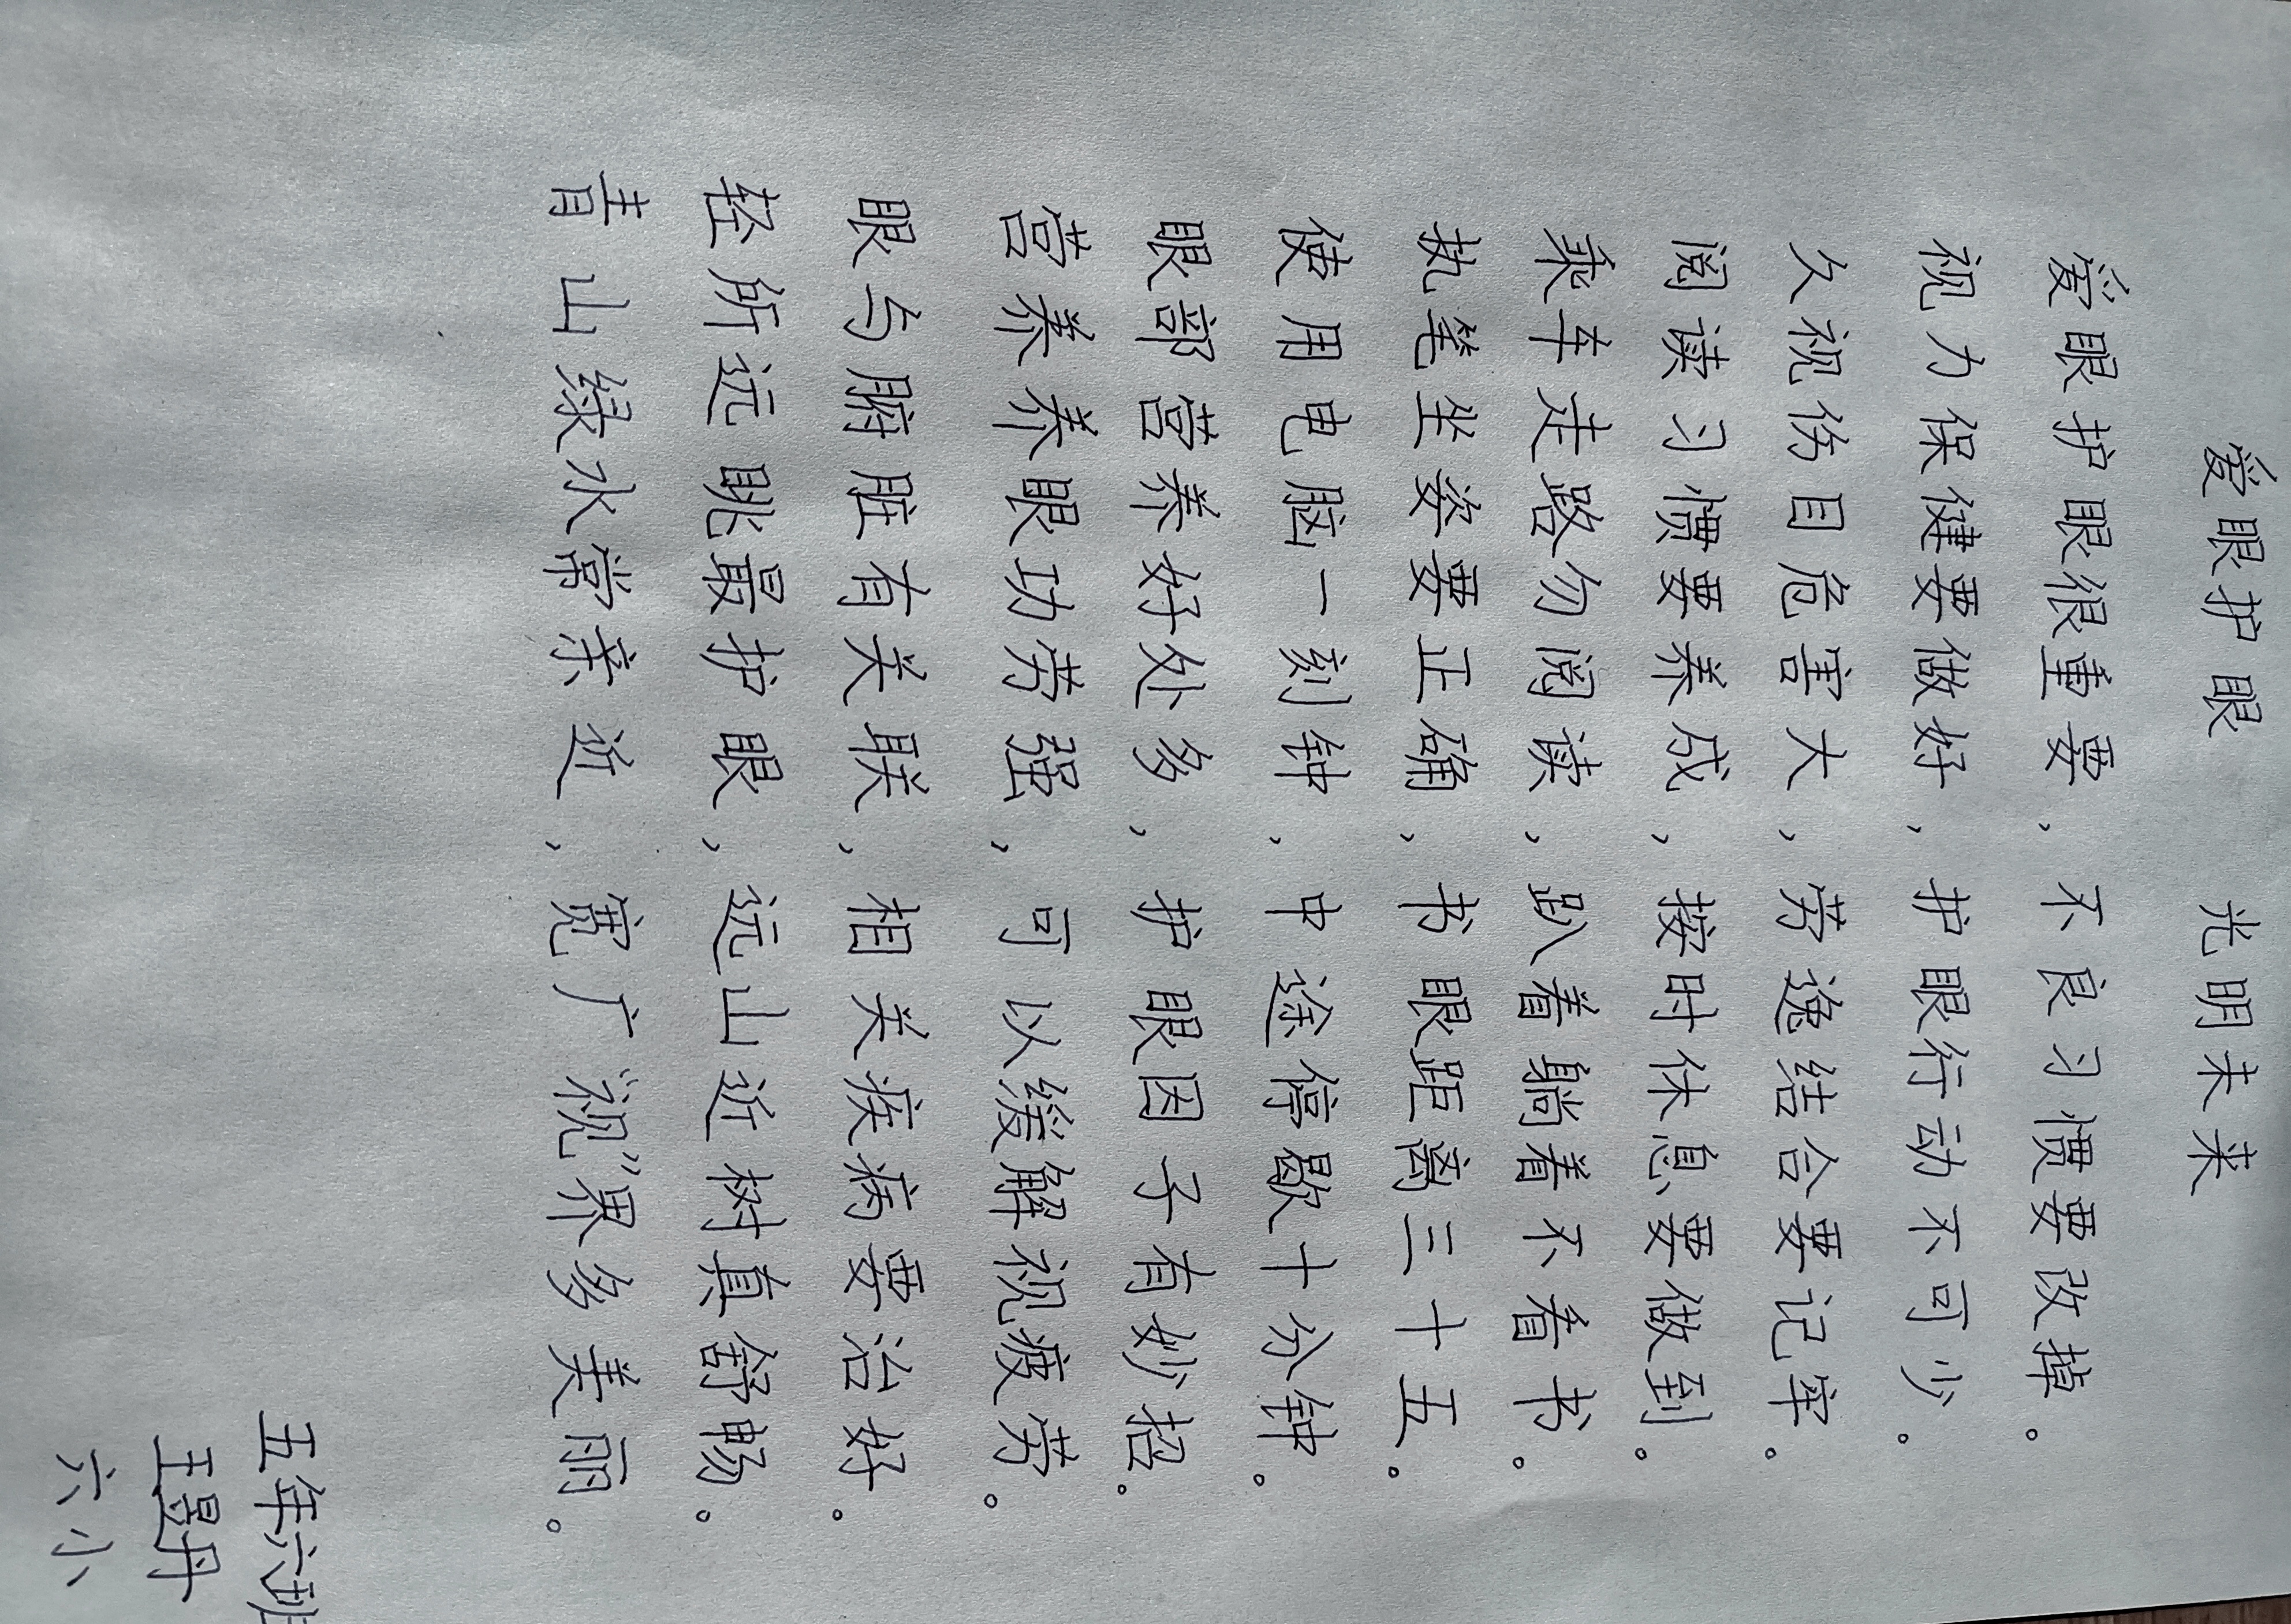 爱眼护眼 光明未来
爱眼护眼很重要,不良习惯要改掉。
视力保健要做好,护眼行动不可少。
久视伤目危害大,劳逸结合要记牢。
阅读习惯要养成,按时休息要做到。
乘车走路勿阅读,趴着躺着不看书。
执笔坐姿要正确,书眼距离三十五。
使用电脑一刻钟,中途停歇十分钟。
眼部营养好处多,护眼因子有妙招。
营养养眼功劳强,可以缓解视疲劳。
眼与腑脏有关联,相关疾病要治好。
轻所远眺最护眼,远山近树真舒畅。
青山绿水常亲近,宽广“视”界多美丽。
五年六班
王昱丹
六小